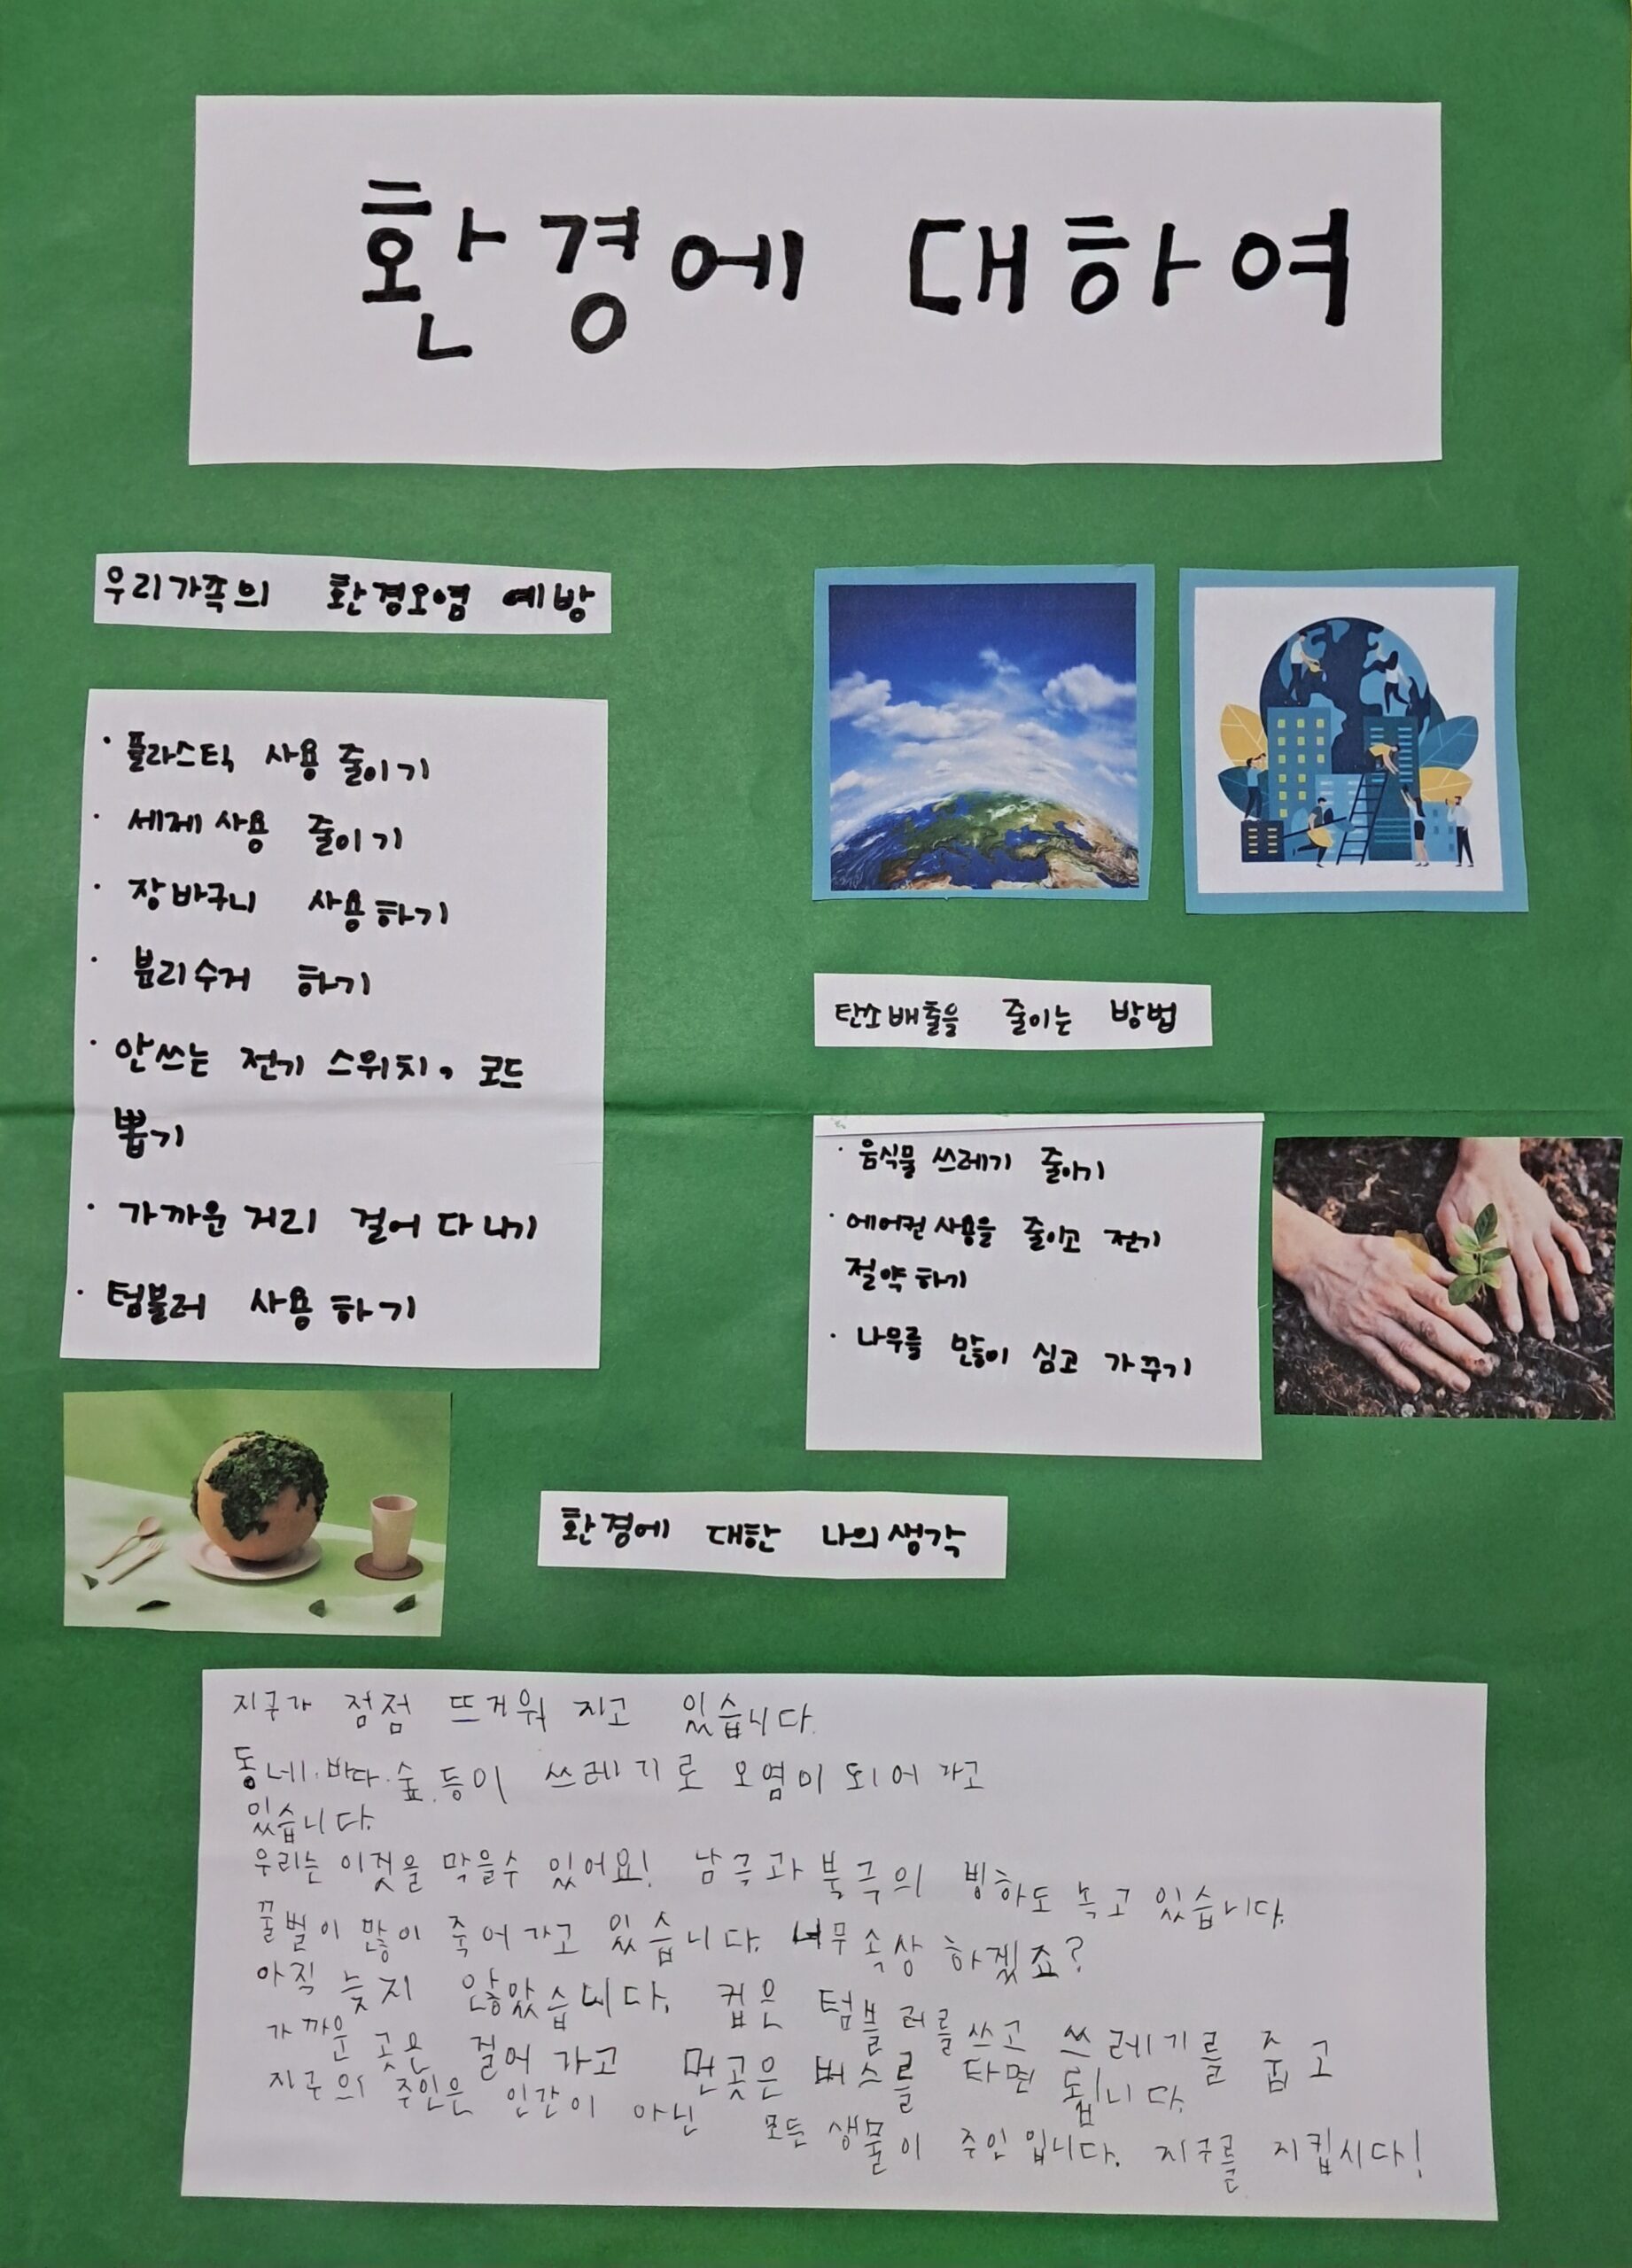 환경에 대하여
우리가족의 환경오염 예방
· 플라스틱 사용 줄이기
· 세제 사용 줄이기
· 장바구니 사용하기
· 분리수거 하기
· 안쓰는 전기 스위치, 코드
뽑기
· 가까운 거리 걸어 다니기
· 텀블러 사용 하기
탄소배출을 줄이는 방법
· 음식물 쓰레기 줄이기
· 에어컨 사용을 줄이고 전기
절약하기
· 나무를 많이 심고 가꾸기
환경에 대한 나의생각
지구가 점점 뜨거워 지고 있습니다.
동네·바다·숲 등이 쓰레기로 오염이 되어 가고
있습니다.
우리는 이것을 막을수 있어요! 남극과 북극의 빙하도 녹고 있습니다.
꿀벌이 많이 죽어가고 있습니다. 너무 속상 하겠죠?
아직 늦지 않았습니다. 컵은 텀블러를 쓰고 쓰레기를 줍고
가까운 곳은 걸어 가고 먼곳은 버스를 타면 됩니다.
지구의 주인은 인간이 아닌 모든 생물이 주인 입니다. 지구를 지킵시다!